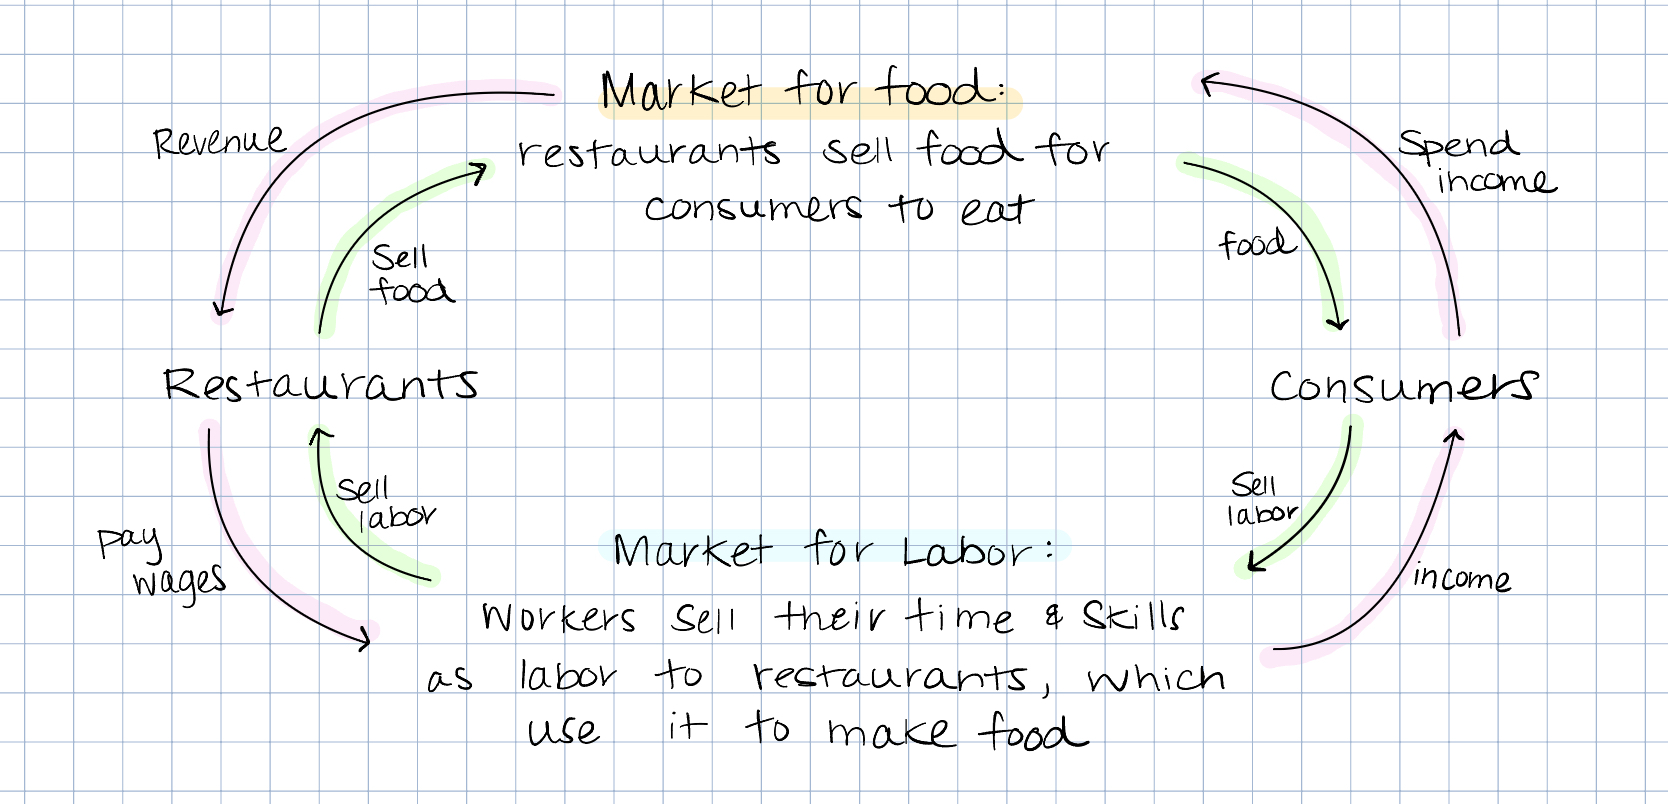 Market for food:
restaurants sell food for
consumers to eat
Revenue
Sell
food
Spend
income
food
Restaurants
Consumers
pay
wages
Sell
labor
Sell
labor
income
Market for Labor:
Workers sell their time & skills
as labor to restaurants, which
use it to make food